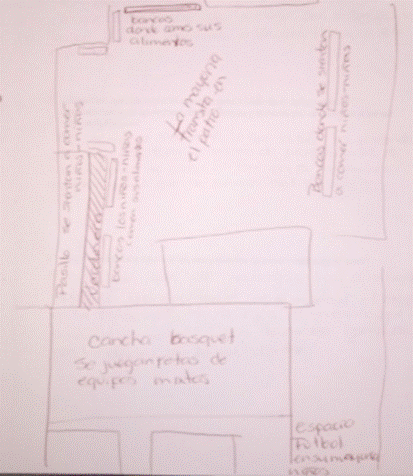 bancas
donde comes sus
alimentos
La mayoria
transita en
el patio
Bancas donde se sientan
a comer niños-niñas
Pasillo se sientan a comer
niños-niñas
bancas los niños-niñas
comen sus alimentos
cancha basquet
se juegan retas de
equipos mixtos
espacio
Futbol
en su mayoria
niños